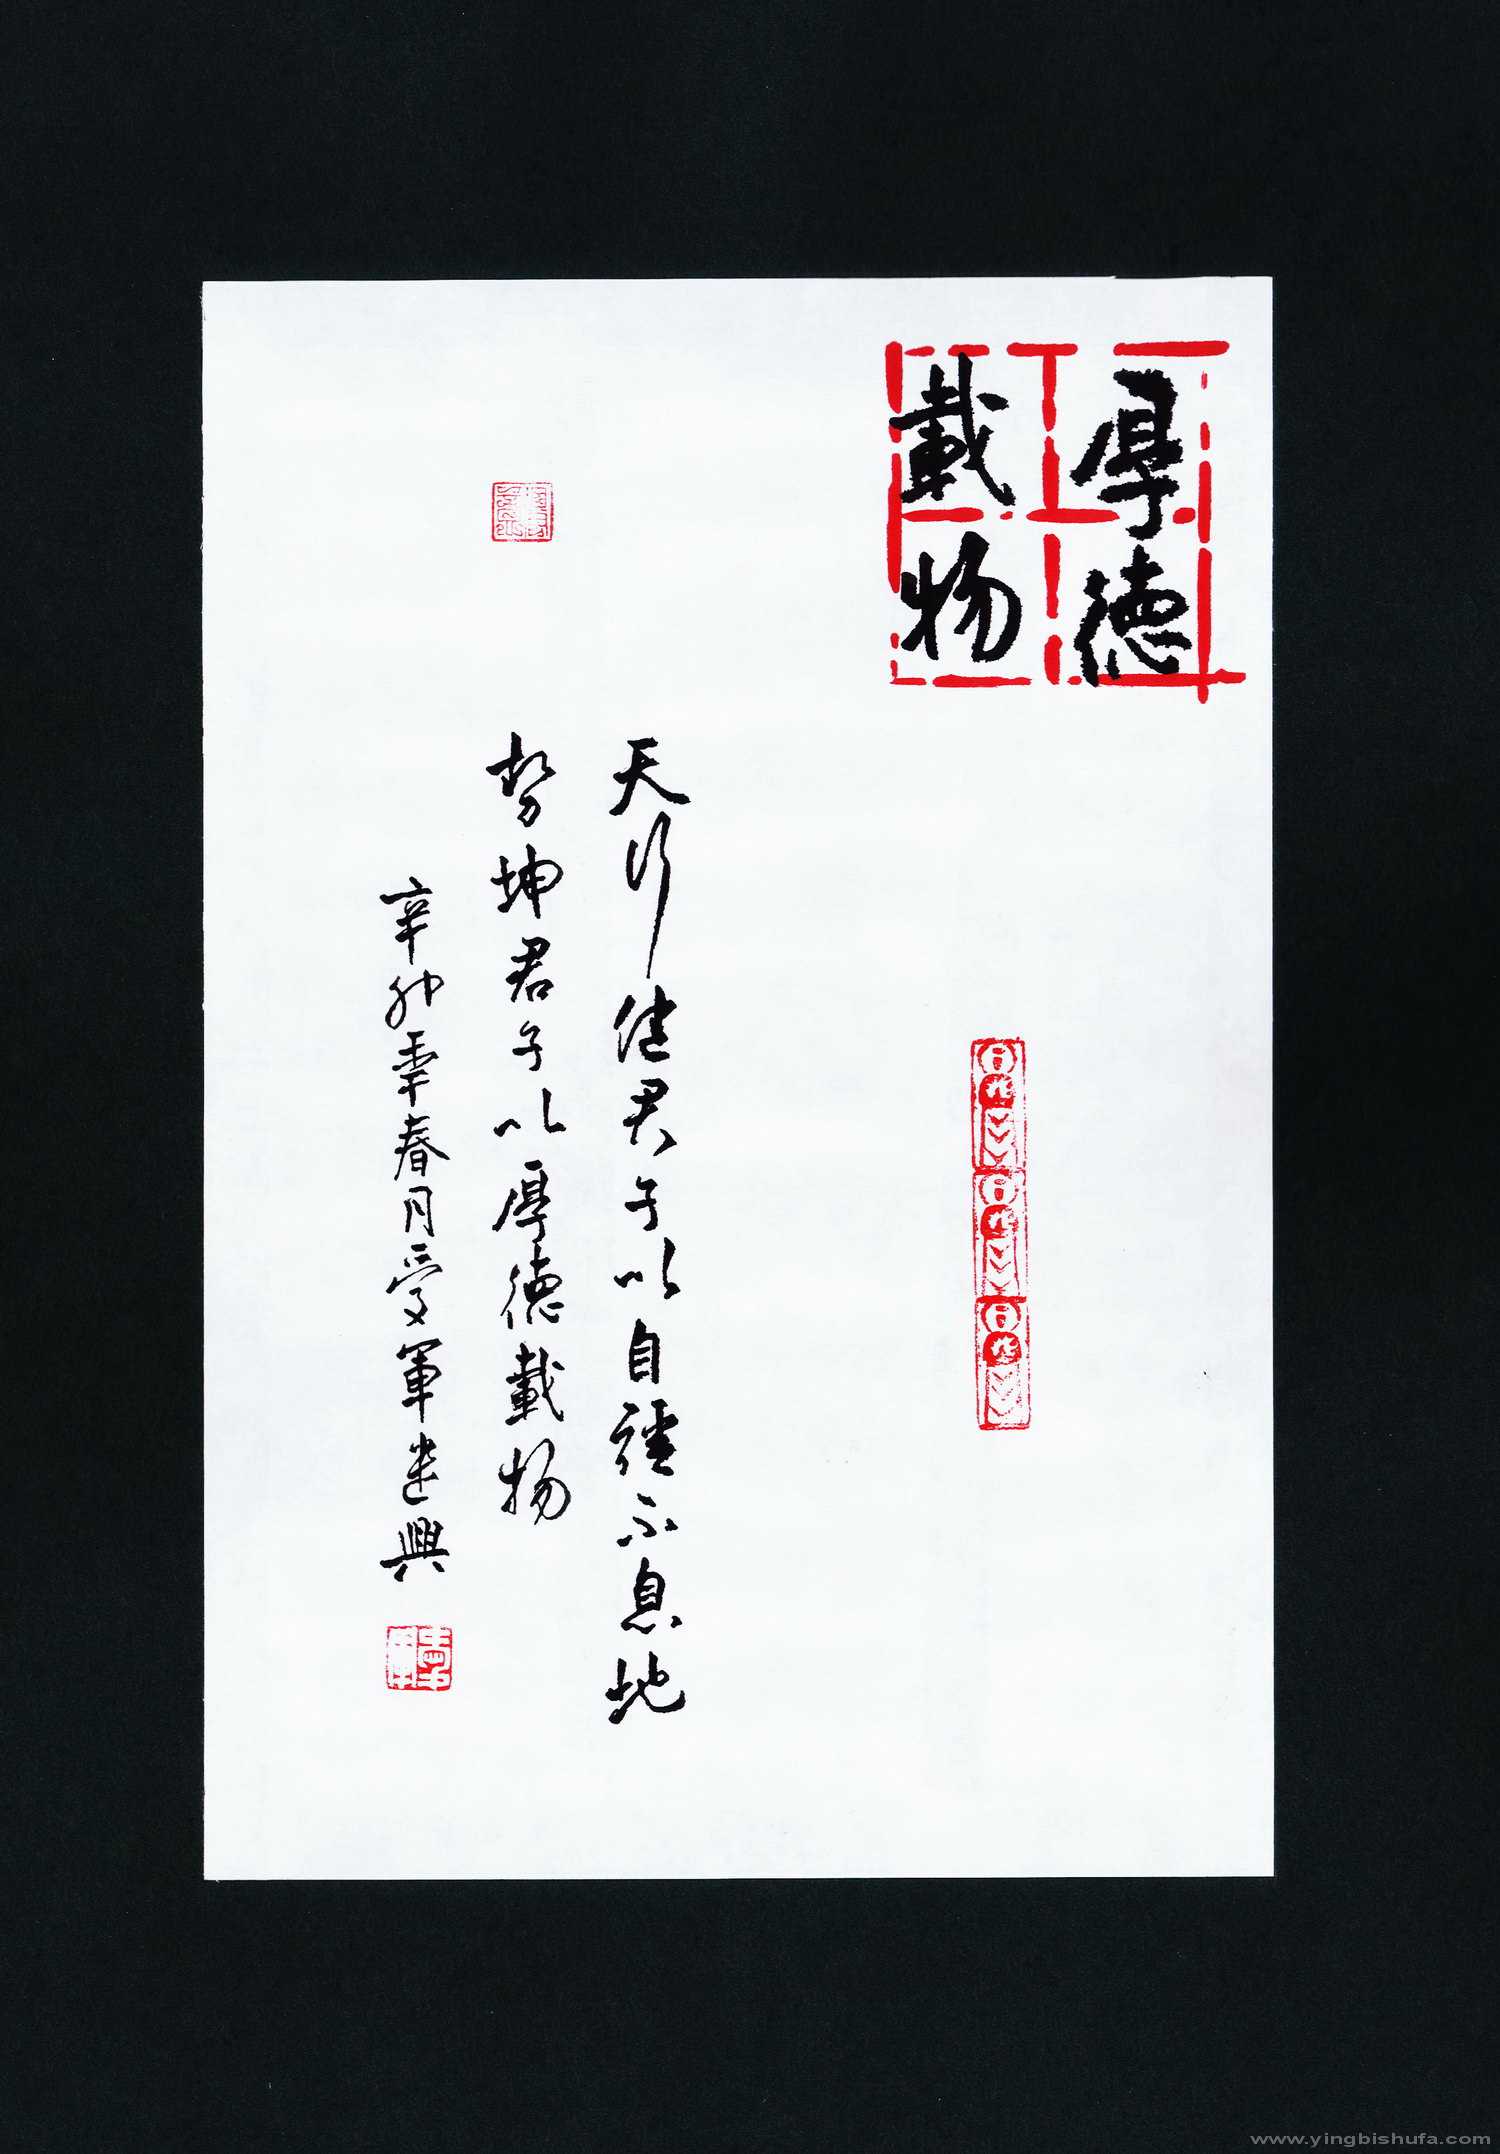 厚德
載物
天行健君子以自強不息地
勢坤君子以厚德載物
辛卯年春月受軍建興
www.yingbishufa.com